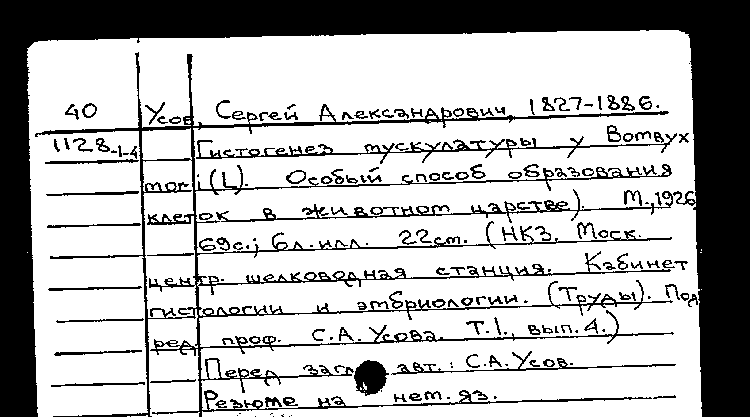 40 Усов, Сергей Александрович, 1827-1886.
1128-1-4 Гистогенез мускулатуры у Bombyx
mori (L). Особый способ образования
клеток в животном царстве). М., 1926
69с.; 6л. илл. 22см. (НКЗ. Моск.
центр. шелководная станция. Кабинет
гистологии и эмбриологии. (Труды). Под
ред. проф. С.А. Усова. Т.I., вып. 4.)
Перед загл. авт.: С.А. Усов.
Резюме на нем. яз.